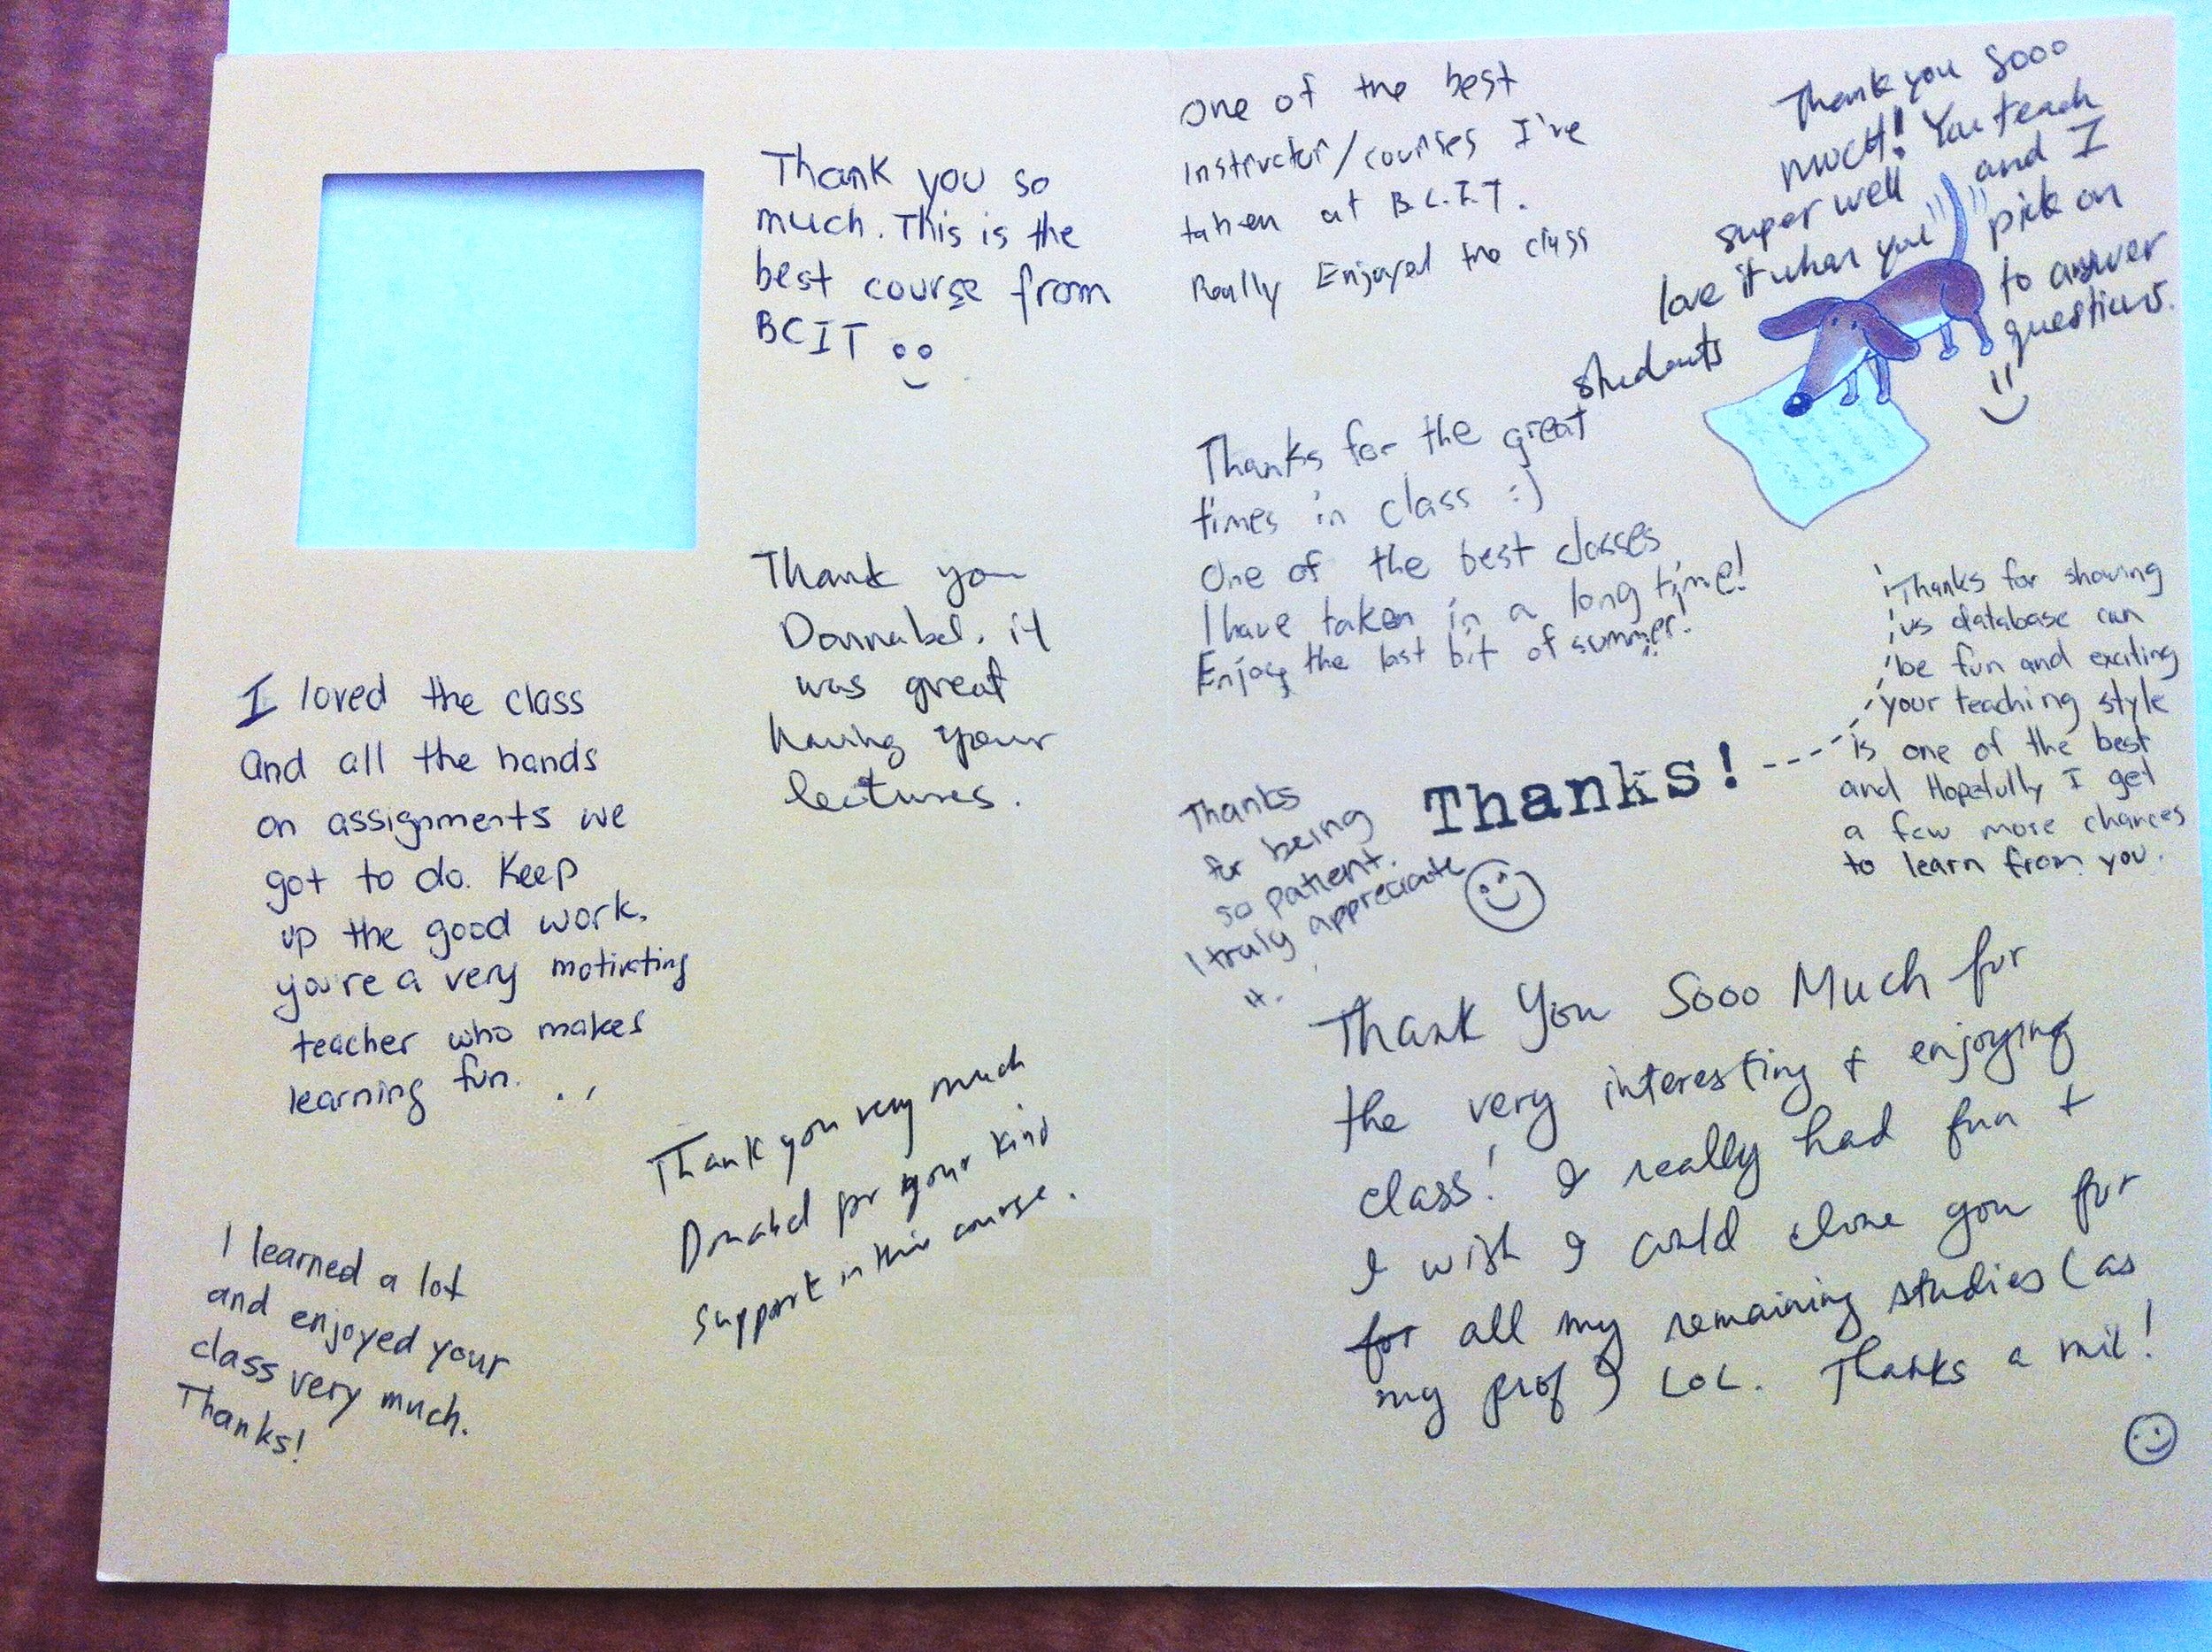 Thank you so
much. This is the
best course from
BCIT
Thank you
Donnabel. it
was great
having your
lectures.
I loved the class
and all the hands
on assignments we
got to do. Keep
up the good work,
you're a very motivating
teacher who makes
learning fun.
Thank you very much
Donabel for your kind
support in this course.
I learned a lot
and enjoyed your
class very much.
Thanks!
One of the best
instructor/courses I've
taken at B.C.I.T.
Really Enjoyed the class
Thank you Sooo
much! You teach
super well and I
love it when you pick on
students to answer
questions.
Thanks for the great
times in class :)
One of the best classes
I have taken in a long time!
Enjoy the last bit of summer!
Thanks!
Thanks for showing
us database can
be fun and exciting
your teaching style
is one of the best
and Hopefully I get
a few more chances
to learn from you.
Thanks
for being
so patient.
I truly appreciate
it.
Thank You Sooo Much for
the very interesting + enjoying
class! I really had fun +
I wish I could clone you for
for all my remaining studies (as
my prof) LOL. Thanks a mil!